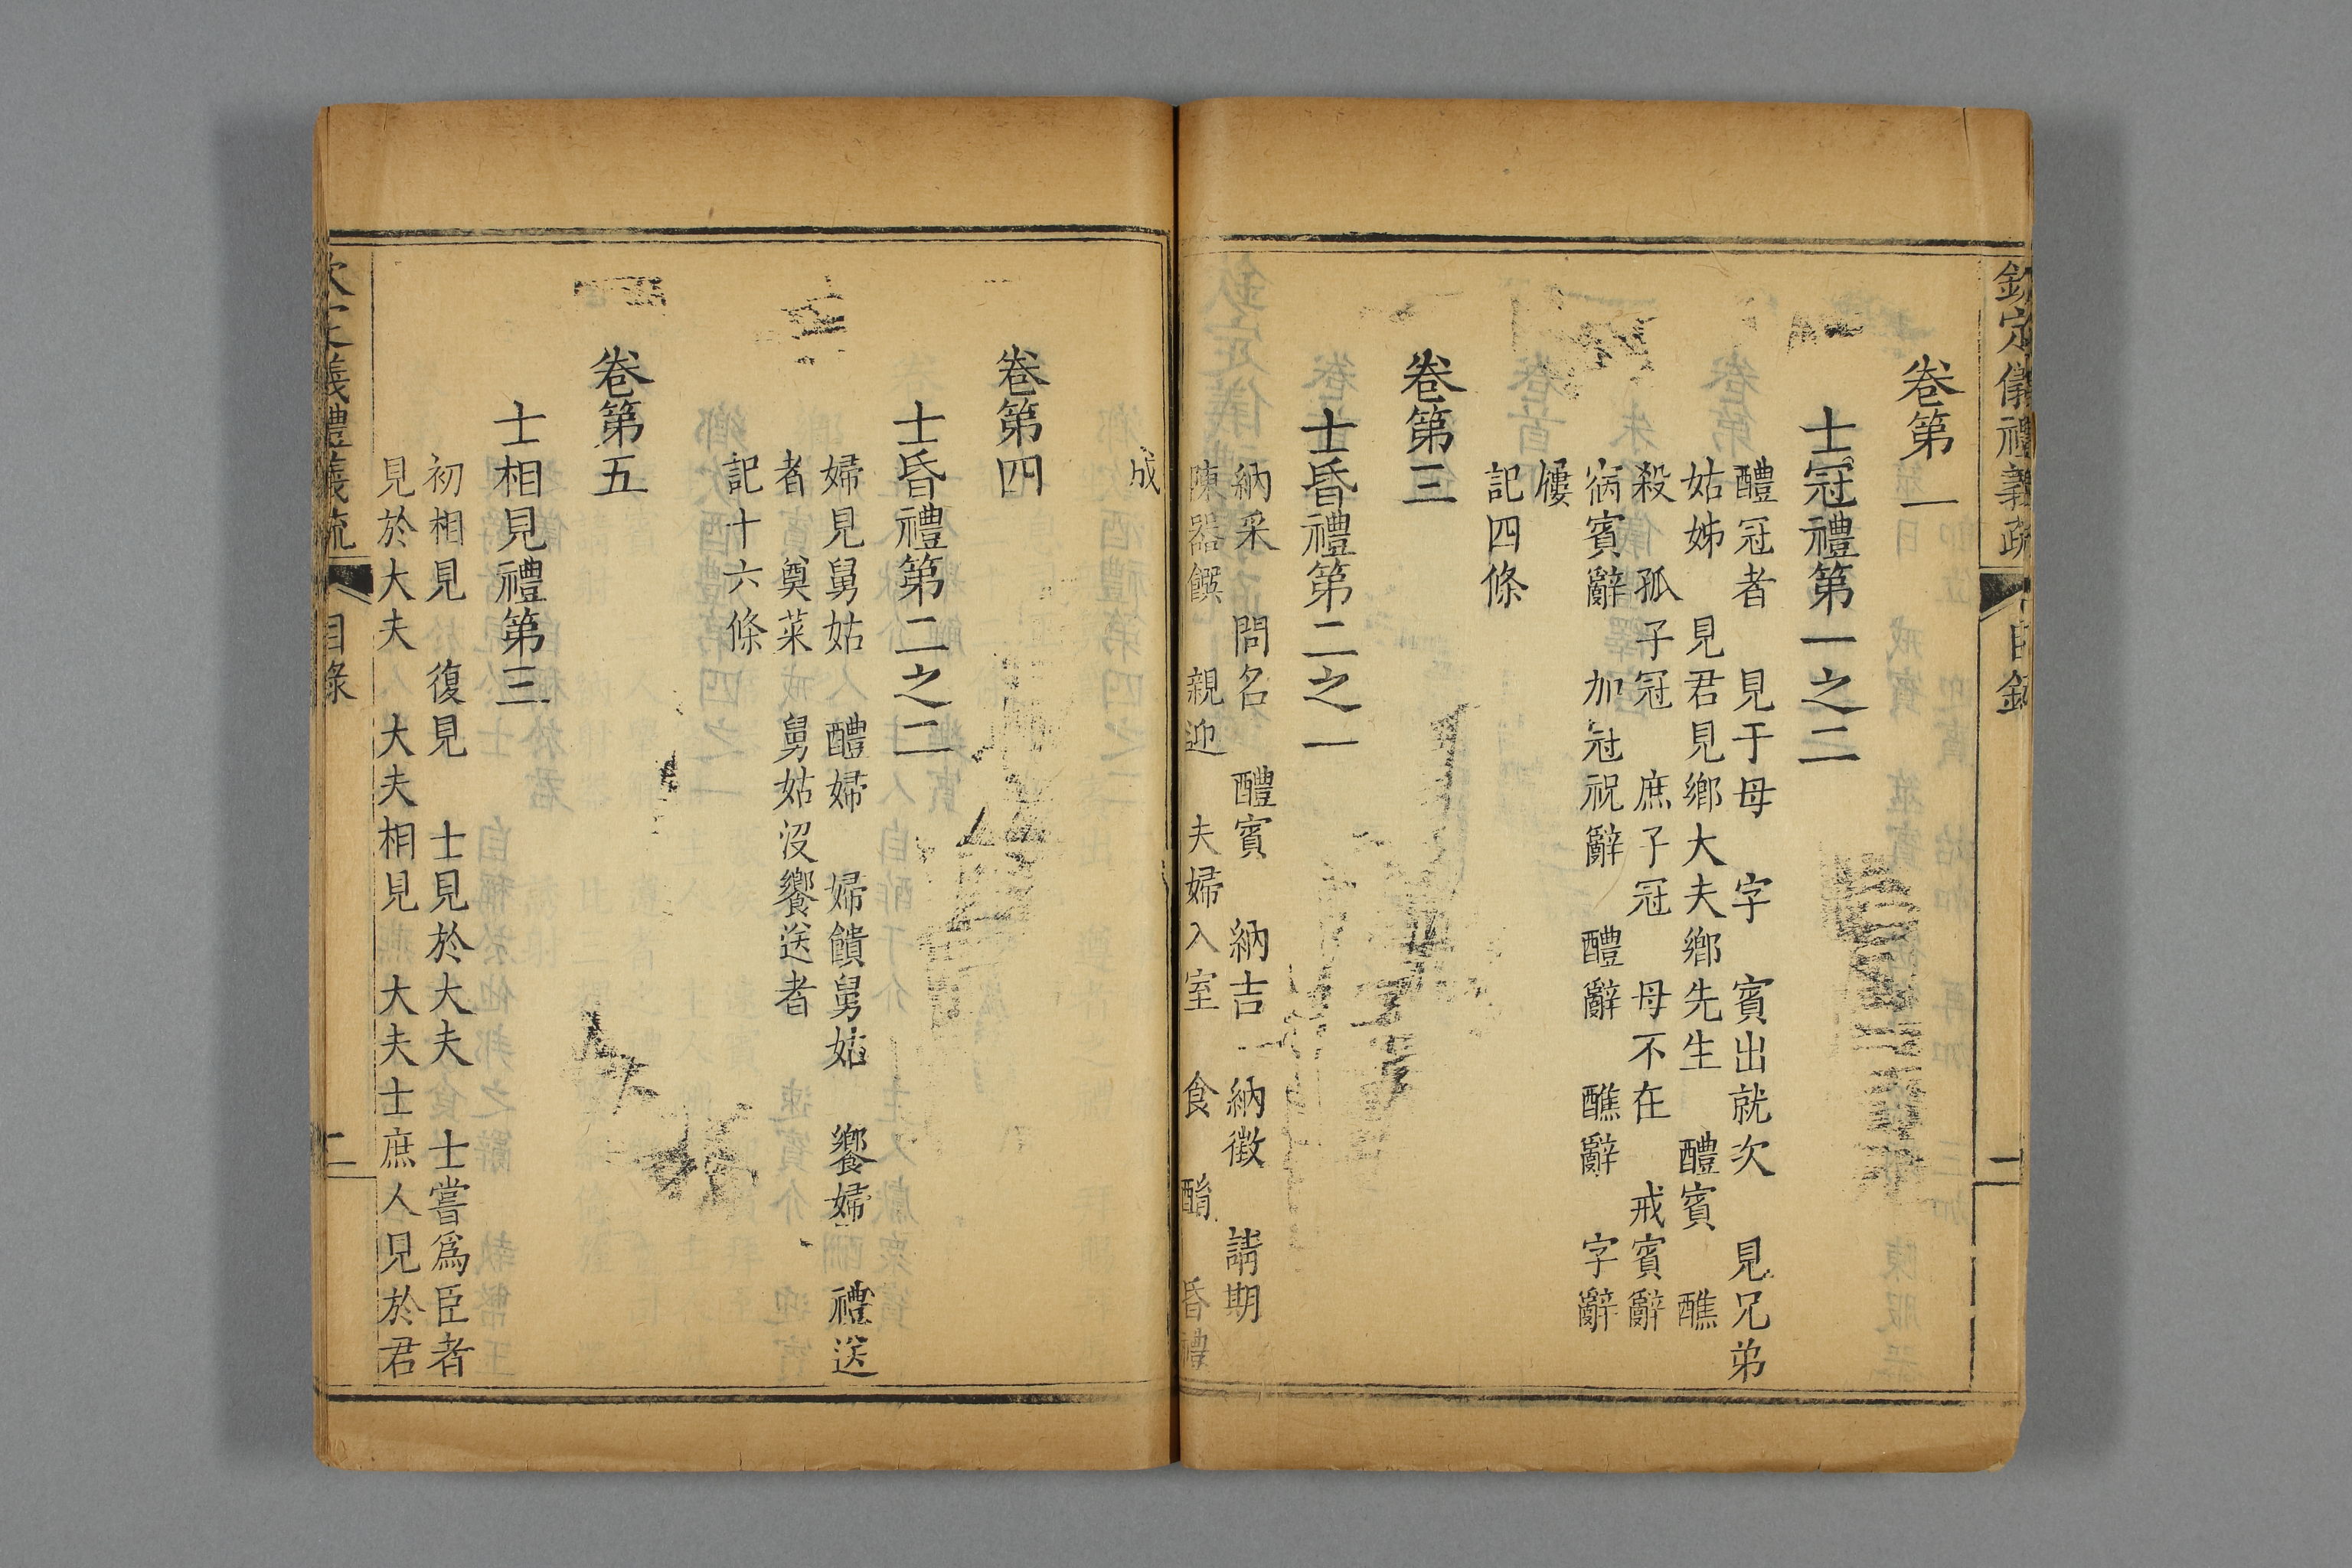 欽定儀禮義疏 目錄 二
卷第一
士冠禮第一之二
醴冠者 見于母 字 賓出就次 見兄弟
姑姊 見君見鄉大夫鄉先生 醴賓 醮
殺 孤子冠 庶子冠 母不在 戒賓辭
宿賓辭 加冠祝辭 醴辭 醮辭 字辭
屨
記四條
卷第三
士昏禮第二之一
納采 問名 醴賓 納吉 納徵 請期
陳器饌 親迎 夫婦入室 食 酳 昏禮
成
卷第四
士昏禮第二之二
婦見舅姑 醴婦 婦饋舅姑 饗婦 禮送
者 奠菜 舅姑沒饗送者
記十六條
卷第五
士相見禮第三
初相見 復見 士見於大夫 士嘗爲臣者
見於大夫 大夫相見 大夫士庶人見於君
儀禮義疏 目錄 二